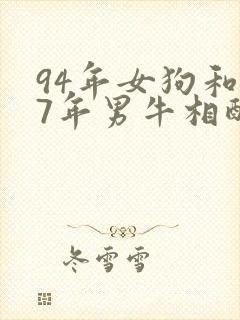 94年女狗和
7年男牛相
冬雪雪